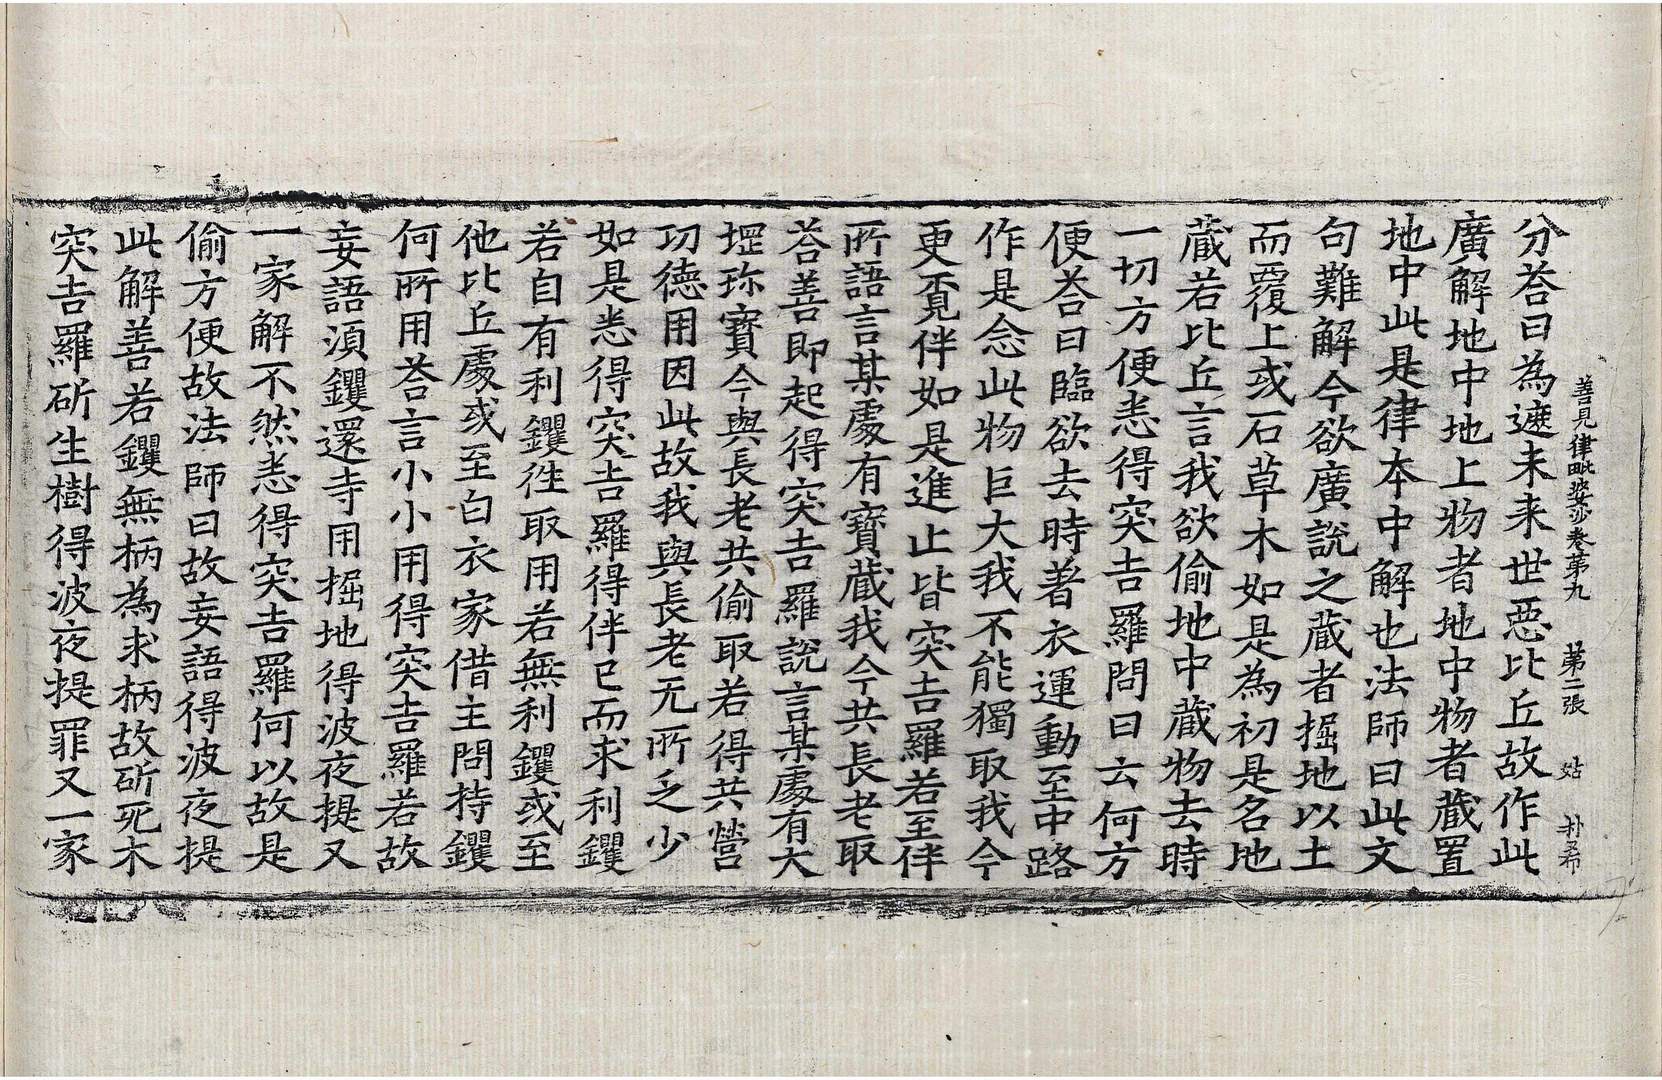 善見律毗婆沙卷第九　第二張　姑　朴希
分荅曰為遮未来世惡比丘故作此
廣解地中地上物者地中物者藏置
地中此是律本中解也法師曰此文
句難解今欲廣說之藏者掘地以土
而覆上或石草木如是為初是名地
藏若比丘言我欲偷地中藏物去時
一切方便悉得突吉羅問曰云何方
便荅曰臨欲去時著衣運動至中路
作是念此物巨大我不能獨取我今
更覓伴如是進止皆突吉羅若至伴
所語言某處有寶藏我今共長老取
荅善即起得突吉羅說言某處有大
堽珎寶今與長老共偷取若得共營
功德用因此故我與長老无所乏少
如是悉得突吉羅得伴已而求利钁
若自有利钁徃取用若無利钁或至
他比丘處或至白衣家借主問持钁
何所用荅言小小用得突吉羅若故
妄語湏钁還寺用掘地得波夜提又
一家解不然悉得突吉羅何以故是
偷方便故法師曰故妄語得波夜提
此解善若钁無柄為求柄故斫死木
突吉羅斫生樹得波夜提罪又一家